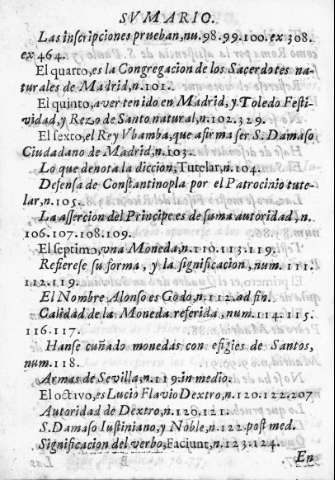 SVMARIO.
Las inscripciones prueban, nu. 98. 99. 100. ex 308.
ex 464.
El quarto, es la Congregacion de los Sacerdotes na-
turales de Madrid, n. 101.
El quinto, aver tenido en Madrid, y Toledo Festi-
vidad, y Rezo de Santo natural, n. 102. 329.
El sexto, el Rey Vbamba, que afirma ser S. Damaso
Ciudadano de Madrid, n. 103.
Lo que denota la diccion, Tutelar, n. 104.
Defensa de Constantinopla por el Patrocinio tute-
lar, n. 105.
La assercion del Principe es de suma autoridad, n.
106. 107. 108. 109.
El septimo, vna Moneda, n. 110. 113. 119.
Refierese su forma, y la significacion, num. 111.
112. 119.
El Nombre Alonso es Godo, n. 112. ad fin.
Calidad de la Moneda referida, num. 114. 115.
116. 117.
Hanse cuñado monedas con efigies de Santos,
num. 118.
Armas de Sevilla, n. 119. in medio.
El octivo, es Lucio Flavio Dextro, n. 120. 122. 207
Autoridad de Dextro, n. 120. 121.
S. Damaso Iustiniano, y Noble, n. 122. post med.
Significacion del verbo, Faciunt, n. 123. 124.
En